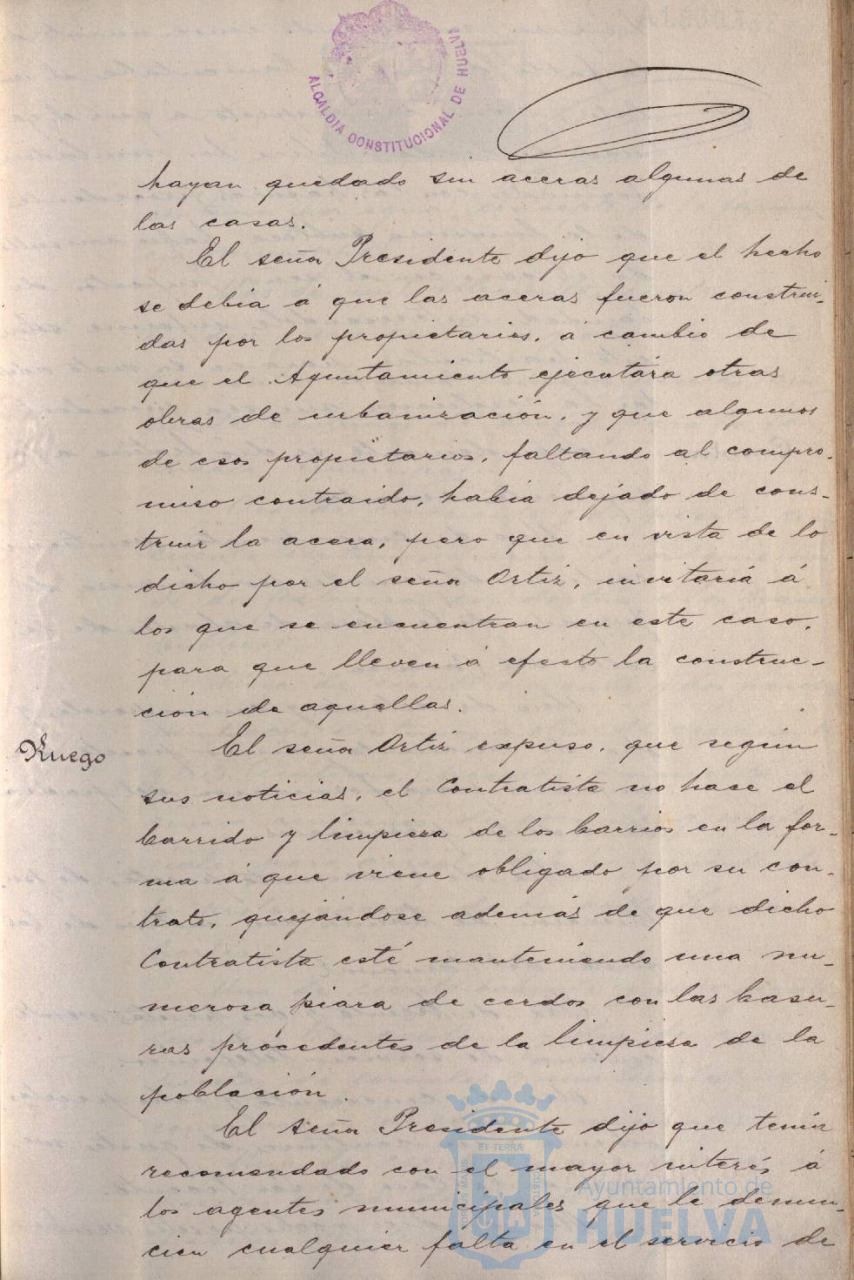 ALCALDIA CONSTITUCIONAL DE HUELVA
hayan quedado sin aceras algunas de
las casas.
El señor Presidente dijo que el hecho
se debia á que las aceras fueron construi-
das por los propietarios, á cambio de
que el Ayuntamiento ejecutára otras
obras de urbanización, y que algunos
de esos propietarios, faltando al compro-
miso contraido, habia dejado de cons-
truir la acera, pero que en vista de lo
dicho por el señor Ortiz, invitaria á
los que se encuentran en este caso,
para que lleven á efecto la construc-
ción de aquellas.
Ruego
El señor Ortiz expuso, que según
sus noticias, el Contratista no hace el
barrido y limpieza de los barrios en la for-
ma á que viene obligado por su con-
trato, quejándose además de que dicho
Contratista esté manteniendo una nu-
merosa piara de cerdos con las basu-
ras procedentes de la limpiesa de la
población.
El señor Presidente dijo que tenia
recomendado con el mayor interés á
los agentes municipales que le denun-
cien cualquier falta en el servicio de
Ayuntamiento de
HUELVA